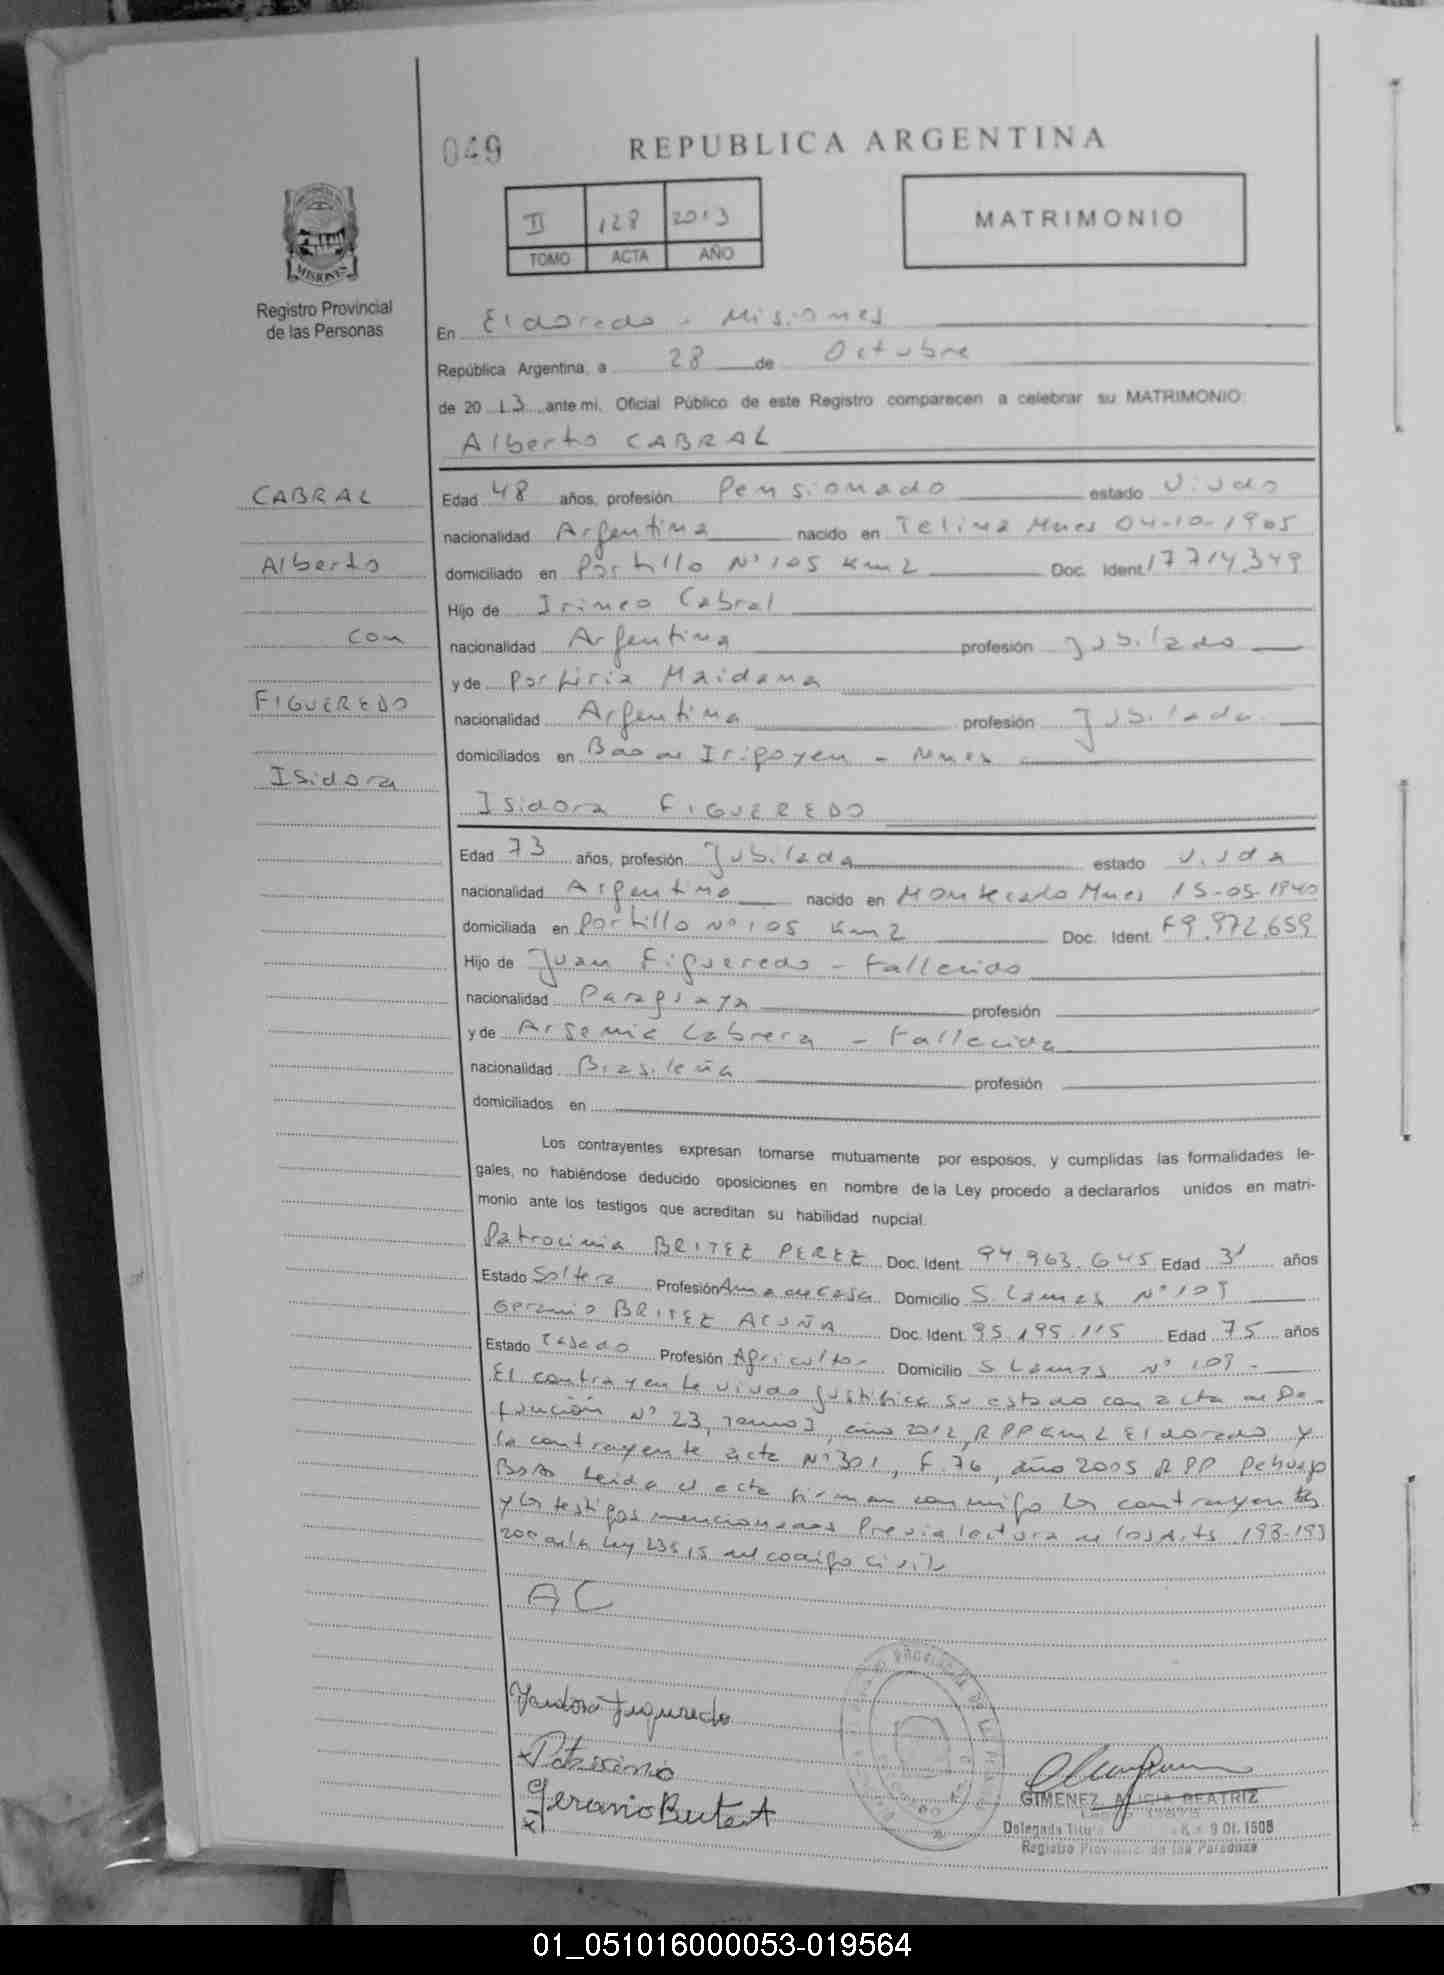 049
REPUBLICA ARGENTINA
II 128 2013
TOMO ACTA AÑO
MATRIMONIO
MISIONES
Registro Provincial
de las Personas
En Eldorado - Misiones
República Argentina, a 28 de Octubre
de 2013 ante mi, Oficial Público de este Registro comparecen a celebrar su MATRIMONIO:
Alberto CABRAL
CABRAL
Alberto
con
FIGUEREDO
Isidora
Edad 48 años, profesión Pensionado estado Viudo
nacionalidad Argentina nacido en Mnes 04-10-1965
domiciliado en Portillo N° 105 Km 2 Doc. Ident. 17714349
Hijo de Irineo Cabral
nacionalidad Argentina profesión Jubilado
y de Porfiria Maidana
nacionalidad Argentina profesión Jubilada
domiciliados en Bdo de Irigoyen - Mnes
Isidora FIGUEREDO
Edad 73 años, profesión Jubilada estado viuda
nacionalidad Argentina nacido en Montecarlo Mnes 15-05-1940
domiciliada en Portillo N° 105 Km 2 Doc. Ident. F9.972.659
Hijo de Juan Figueredo - Fallecido
nacionalidad Paraguaya profesión
y de Arsenia Cabrera - Fallecida
nacionalidad Brasileña profesión
domiciliados en
Los contrayentes expresan tomarse mutuamente por esposos, y cumplidas las formalidades le-
gales, no habiéndose deducido oposiciones en nombre de la Ley procedo a declararlos unidos en matri-
monio ante los testigos que acreditan su habilidad nupcial.
Patrocinia BRITEZ PEREZ Doc. Ident. 94.963.645 Edad 31 años
Estado Soltera Profesión Ama de Casa Domicilio S. Lamas N° 109
Geranio BRITEZ ACUÑA Doc. Ident. 95.195.115 Edad 75 años
Estado Casado Profesión Agricultor Domicilio S Lamas N° 109 -
El contrayente viudo justifica su estado con acta de De-
función N° 23, Tomo I, año 2012, RPP Km 2 Eldorado y
la contrayente acta N° 301, F. 76, año 2005 RPP Pehuajo
BsAs Leida el acta firman conmigo los contrayentes
y los testigos mencionados Previa lectura de los Arts. 198-199
200 de la Ley 23515 del codigo civil
AC
Figueredo
Patrocinio
Geranio Britez A
GIMENEZ, ALICIA BEATRIZ
Delegada Titu
Registro Provincial de las Personas
01_051016000053-019564